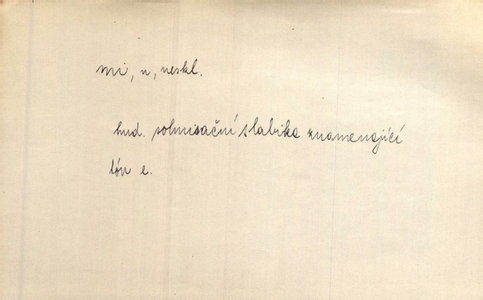 mi, n, neskl.
hud. solmisační slabika znamenající
tón e.